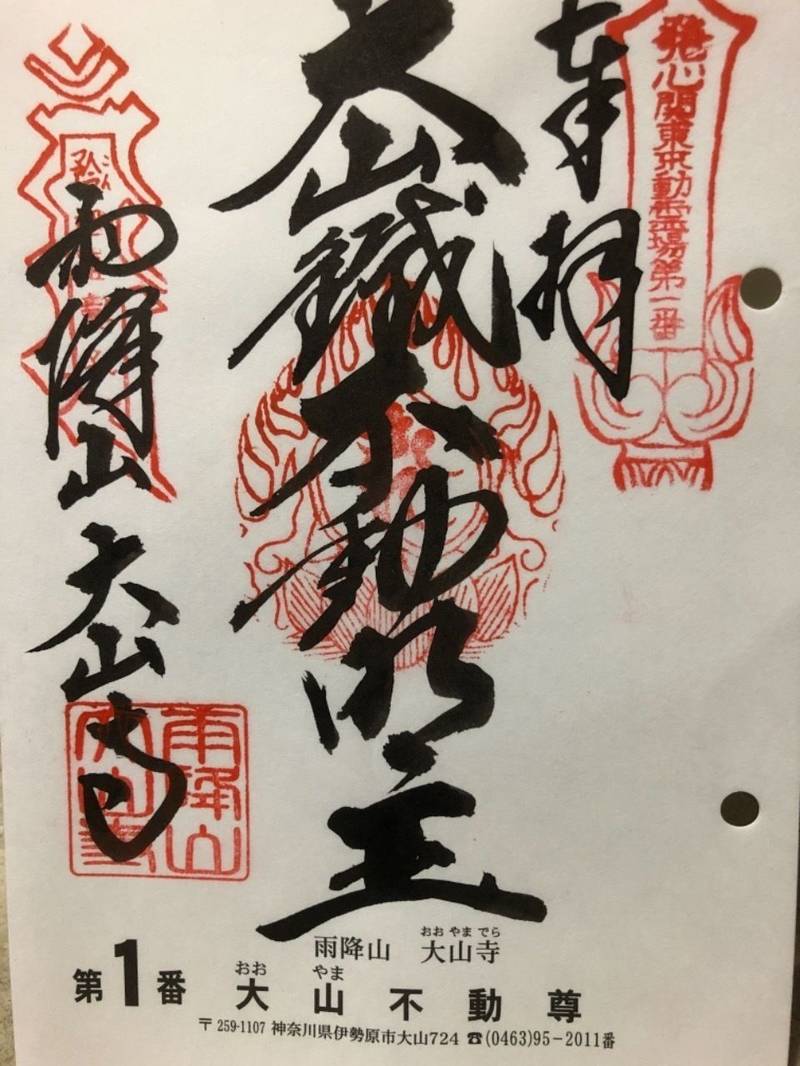 発心関東不動霊場第一番
奉拝
大山鐵不動明王
雨降山 大山寺
雨降山
大山寺
おおやまでら
雨降山 大山寺
おお やま
第1番 大山不動尊
〒259-1107 神奈川県伊勢原市大山724 ☎(0463)95-2011番